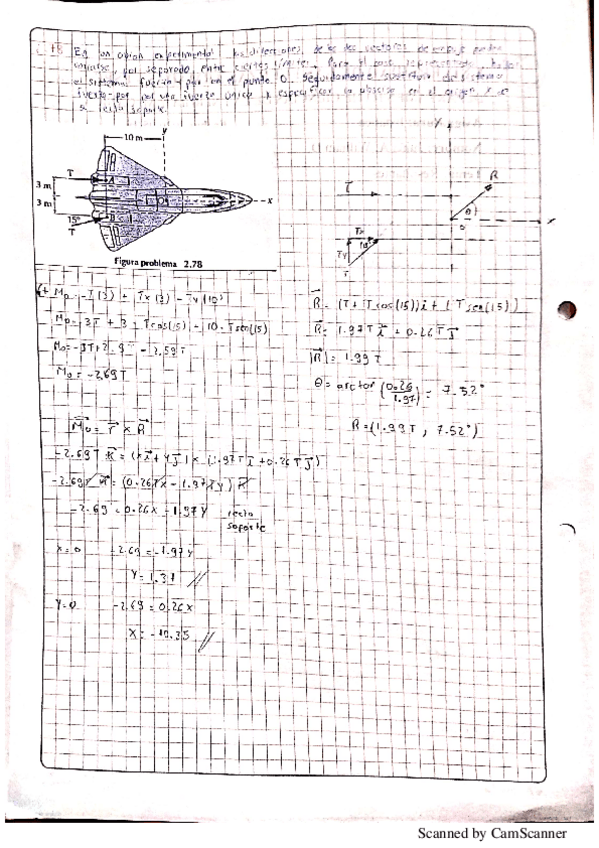 En un avion experimental, las direcciones de los dos vectores de empuje pueden
por separado, entre ciertos límites. Para el caso representado,
el sistema fuerza-par en el punto O. Seguidamente sustituir el sistema
fuerza-par por una fuerza única y especificar
10 m
y
T
A
3 m
3 m
O
x
B
15°
T
Figura problema 2.78
Y
R
T
θ
x
o
Tx
Ty
T
M₀ = -T(3) + Tx(3) - Ty(10)
M₀ = -3T + 3 · Tcos(15) - 10 · Tsen(15)
M₀ = -3T + 2.9T - 2.59T
M₀ = -2.69T
R = (T + Tcos(15))i + (Tsen(15))
R = 1.97Ti + 0.26TJ
|R| = 1.99T
θ = arctan (0.26/1.97) = 7.52°
R = (1.99T, 7.52°)
M₀ = r x R
-2.69T K = (xi + yJ) x (1.97Ti + 0.26TJ)
-2.69T K = (0.26Tx - 1.97Ty) K
-2.69 = 0.26x - 1.97y recta
soporte
x=0 -2.69 = -1.97y
y = 1.37 //
y=0 -2.69 = 0.26x
x = -10.35 //
Scanned by CamScanner